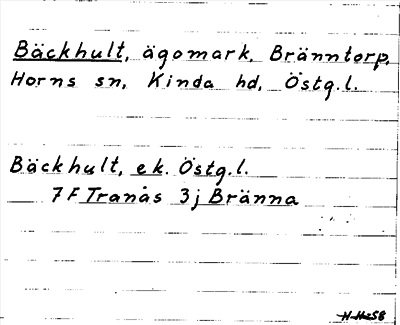 Bäckhult, ägomark, Bränntorp,
Horns sn, Kinda hd, Östg.l.
Bäckhult, ek. Östg.l.
7F Tranås 3j Bränna